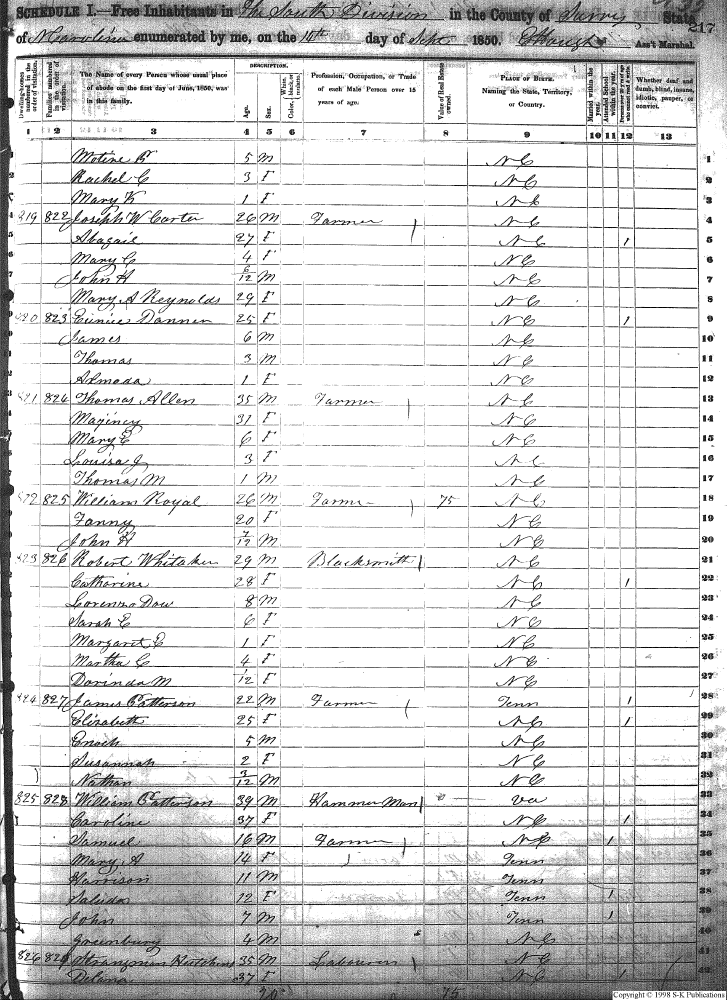 SCHEDULE I.—Free Inhabitants in The South Division in the County of Surry State
of N Carolina enumerated by me, on the 10th day of Sept 1850. Ass't Marshal.
217
Dwelling-houses numbered in the order of visitation.
Families numbered in the order of visitation.
The Name of every Person whose usual place of abode on the first day of June, 1850, was in this family.
DESCRIPTION.
Age.
Sex.
Color, White, black, or mulatto.
Profession, Occupation, or Trade of each Male Person over 15 years of age.
Value of Real Estate owned.
PLACE OF BIRTH. Naming the State, Territory, or Country.
Married within the year.
Attended School within the year.
Persons over 20 y'rs of age who cannot read & write.
Whether deaf and dumb, blind, insane, idiotic, pauper, or convict.
1 2 3 4 5 6 7 8 9 10 11 12 13
1 5 M N C 1
2 Rachel C 3 F N C 2
3 Mary K 1 F N C 3
4 819 822 Joseph W Carter 26 M Farmer N C 4
5 Abagail 27 F N C 1 5
6 Mary C 4 F N C 6
7 John H 6/12 M N C 7
8 Mary A Reynolds 29 F N C 8
9 820 823 Eunice Danner 25 F N C 1 9
10 James 6 M N C 10
11 Thomas 3 M N C 11
12 Almeda 1 F N C 12
13 821 824 Thomas Allen 35 M Farmer N C 13
14 Maginey 31 F N C 14
15 Mary E 6 F N C 15
16 Louisa J 3 F N C 16
17 Thomas M 1 M N C 17
18 822 825 William Royal 26 M Farmer 75 N C 18
19 Fanny 20 F N C 19
20 John H 7/12 M N C 20
21 823 826 Robert Whitaker 29 M Blacksmith N C 21
22 Catharine 28 F N C 1 22
23 Lorenzo Dow 8 M N C 23
24 Sarah E 6 F N C 24
25 Margaret E 1 F N C 25
26 Martha C 4 F N C 26
27 Dorinda M 1/12 F N C 27
28 824 827 James Patterson 22 M Farmer Tenn 1 28
29 Elizabeth 25 F N C 1 29
30 Enoch 5 M N C 30
31 Susannah 2 F N C 31
32 Nathan 3/12 M N C 32
33 825 828 William Patterson 39 M Hammer Man Va 33
34 Caroline 37 F N C 1 34
35 Samuel 16 M Farmer N C 1 35
36 Mary A 14 F Tenn 36
37 Harrison 11 M Tenn 37
38 12 F Tenn 1 38
39 John 7 M Tenn 1 39
40 Greenbury 4 M N C 40
41 826 829 Strangman Hutchens 35 M Labourer N C 41
42 Delana 37 F N C 1 42
75
Copyright © 1998 S-K Publications